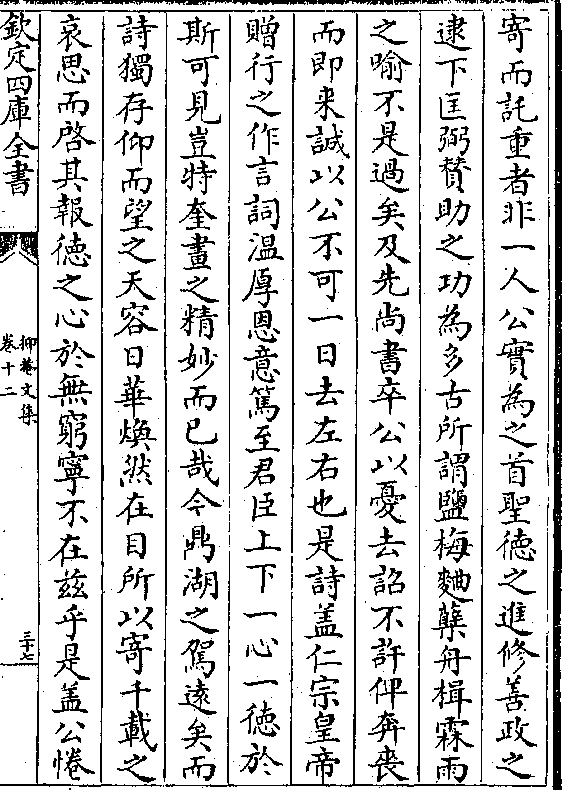 寄而託重者非一人公實為之首聖徳之進修善政之
逮下匡弼賛助之功為多古所謂鹽梅麯糵舟楫霖雨
之喻不是過矣及先尚書卒公以憂去詔不許俾奔喪
而即来誠以公不可一日去左右也是詩盖仁宗皇帝
贈行之作言詞温厚恩意篤至君臣上下一心一徳於
斯可見豈特奎畫之精妙而已哉今鼎湖之駕逺矣而
詩獨存仰而望之天容日華煥然在目所以寄千載之
哀思而啓其報徳之心於無窮寧不在兹乎是盖公惓
欽定四庫全書
抑菴文集
卷十二
三十七